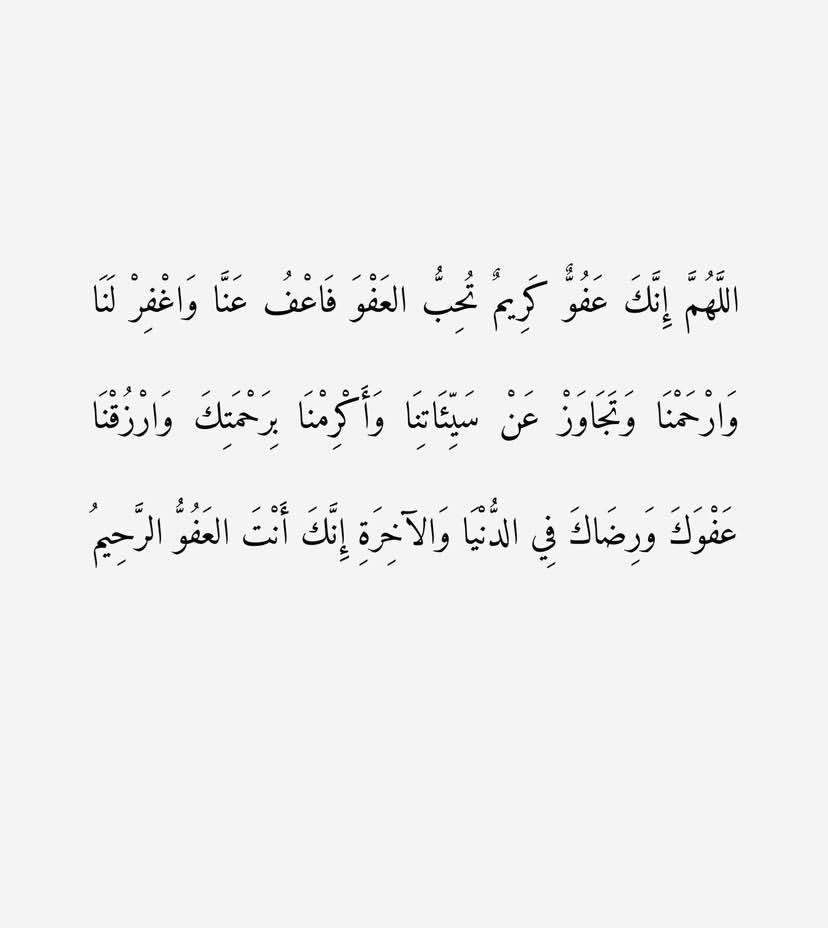 اللَّهُمَّ إِنَّكَ عَفُوٌّ كَرِيمٌ تُحِبُّ العَفْوَ فَاعْفُ عَنَّا وَاغْفِرْ لَنَا
وَارْحَمْنَا وَتَجَاوَزْ عَنْ سَيِّئَاتِنَا وَأَكْرِمْنَا بِرَحْمَتِكَ وَارْزُقْنَا
عَفْوَكَ وَرِضَاكَ فِي الدُّنْيَا وَالآخِرَةِ إِنَّكَ أَنْتَ العَفُوُّ الرَّحِيمُ